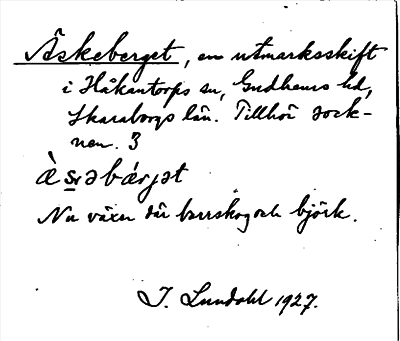 Äskeberget, en utmarksskift
i Håkantorps sn, Gudhems hd,
Skaraborgs län. Tillhör sock-
nen. 3
Nu växer där barrskog och björk.
I. Lundahl 1927.